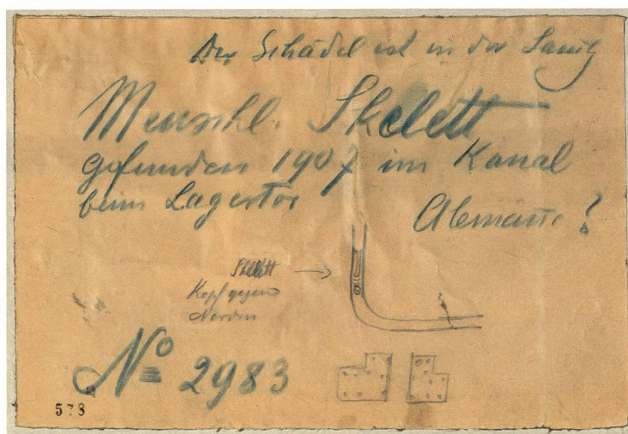 Der Schädel ist in der Samlg
Menschl. Skelett
gefunden 1907 im Kanal
beim Lagertor Alemanne?
Skelett
Kopf gegen
Norden
№ 2983
578